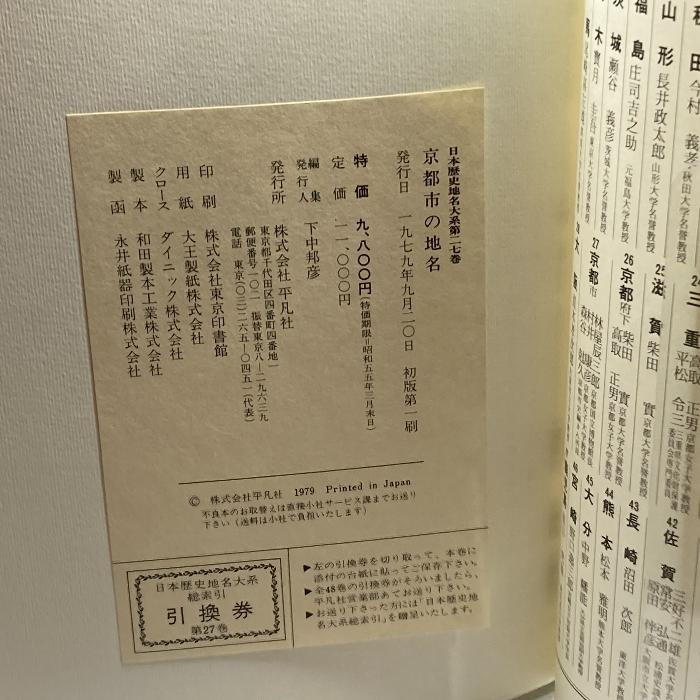 日本歴史地名大系第二七巻
京都市の地名
発行日 一九七九年九月二〇日 初版第一刷
特価 九、八〇〇円(特価期限=昭和五五年三月末日)
定価 一一、〇〇〇円
編集
発行人 下中邦彦
発行所 株式会社 平凡社
東京都千代田区四番町四番地一
郵便番号一〇二 振替東京八―二九六三九
電話 東京(〇三)二六五―〇四五一(代表)
印刷 株式会社東京印書館
用紙 大王製紙株式会社
クロース ダイニック株式会社
製本 和田製本工業株式会社
製函 永井紙器印刷株式会社
© 株式会社平凡社 1979 Printed in Japan
不良本のお取替えは直接小社サービス課までお送り
下さい(送料は小社で負担いたします)
日本歴史地名大系
総索引
引換券
第27巻
▶左の引換券を切り取って、本巻に
添付の台紙に貼ってご保存下さい。
▶全48巻の引換券がそろいましたら、
平凡社営業部あてお送り下さい。
▶お送り下さった方には「日本歴史地
名大系総索引」を贈呈いたします。
山形 長井政太郎 山形大学名誉教授
福島 庄司吉之助 元福島大学教授
茨城 瀬谷 義彦 茨城大学名誉教授
24 三重
25 滋賀 柴田 實 京都大学名誉教授
26 京都府下 柴田 實 京都大学名誉教授
高取 正男 京都女子大学教授
27 京都市 林屋辰三郎 京都国立博物館長
村井 康彦
森谷 尅久
42 佐賀 三好不二雄 佐賀大学名誉教授
43 長崎 沼田 次郎 東洋大学教授
44 熊本 松本 雅明 熊本大学名誉教授
45 大分 中野 幡能
46 宮崎